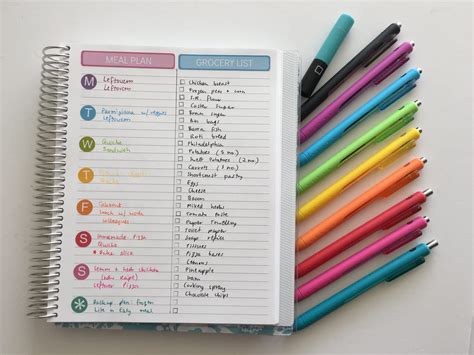 MEAL PLAN
M
Leftovers
Leftovers
T
Parmigiana w/ veges
Leftovers
W
Quiche
Sandwich
T
F
Takeout
Lunch w/ work
colleagues
S
Homemade Pizza
Quiche
S
Lemon & herb chicken
Leftover Pizza
Backup plan: frozen
GROCERY LIST
Chicken breast
Frozen peas & corn
S.R. flour
Caster sugar
Brown sugar
Bin bags
Basa fish
Roti bread
Philadelphia
Potatoes
Sweet Potatoes (2 no.)
Carrots
Shortcrust pastry
Eggs
Cheese
Bacon
Mixed herbs
Tomato paste
Paper Towelling
Toilet paper
Soap refill
Tissues
Pizza bases
Lemons
Pineapple
Ham
Cooking spray
Chocolate chips